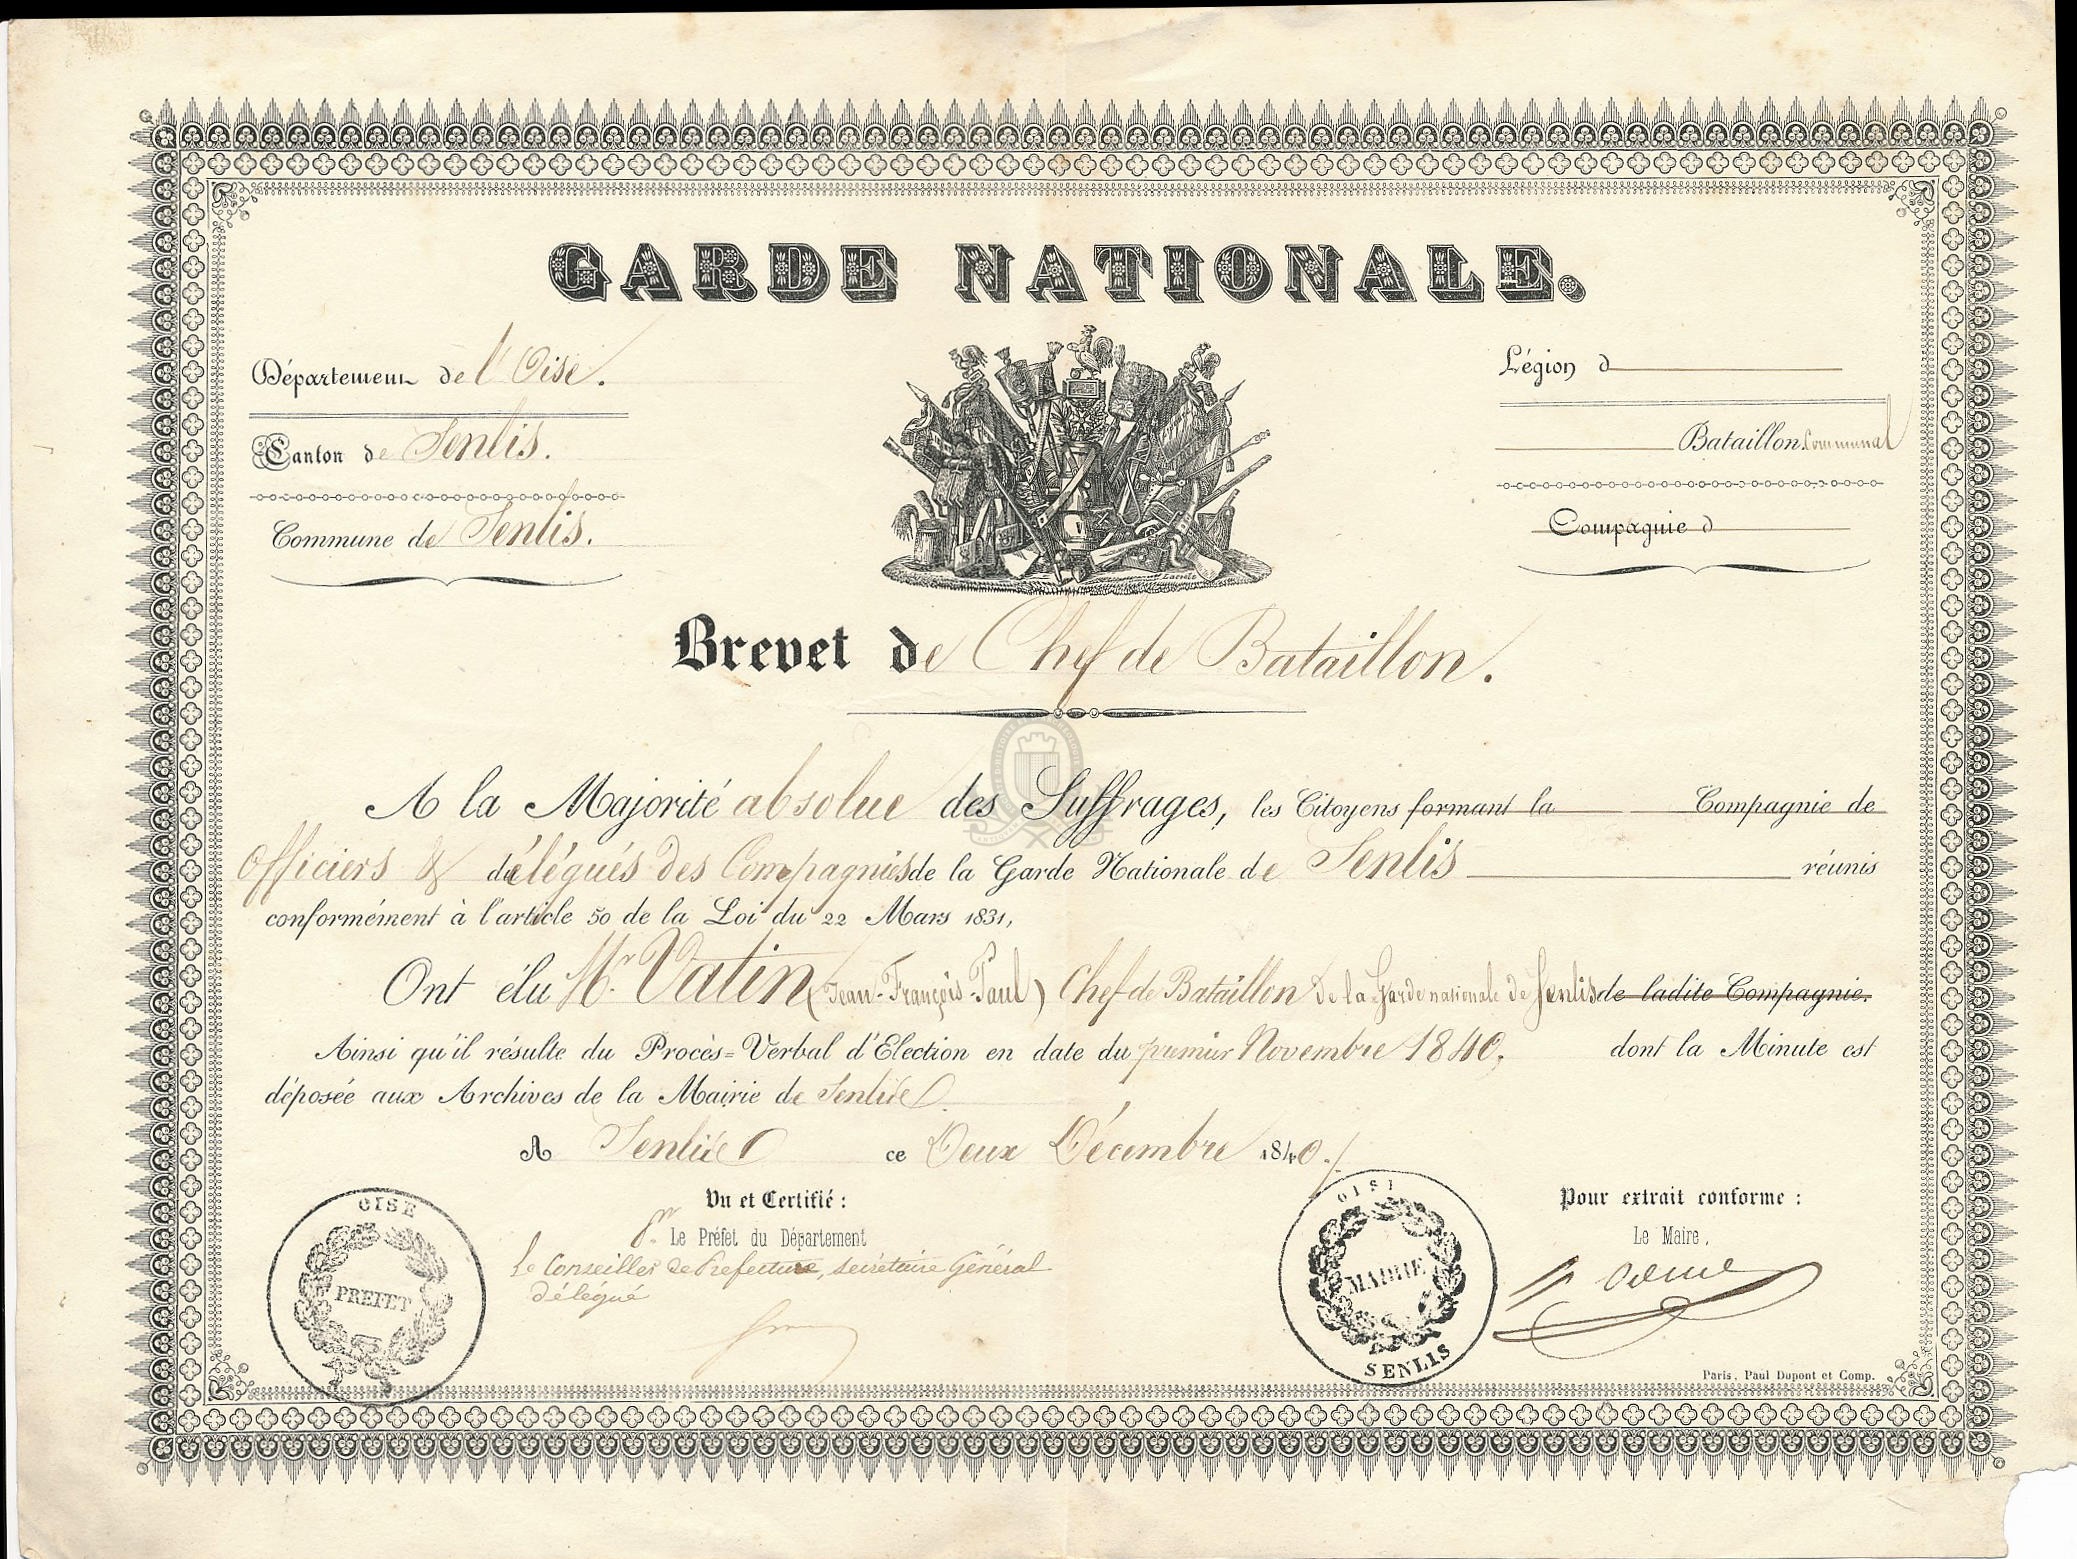 GARDE NATIONALE.
Département de l'Oise.
Canton de Senlis.
Commune de Senlis.
Légion d
Bataillon communal
Compagnie d
Lacoste
Brevet de Chef de Bataillon.
A la Majorité absolue des Suffrages, les Citoyens formant la Compagnie de
Officiers & délégués des Compagnies de la Garde Nationale de Senlis réunis
conformément à l'article 50 de la Loi du 22 Mars 1831,
Ont élu Mr. Vatin (Jean-François-Paul) Chef de Bataillon de la Garde nationale de Senlis de ladite Compagnie.
Ainsi qu'il résulte du Procès=Verbal d'Election en date du premier Novembre 1840, dont la Minute est
déposée aux Archives de la Mairie de Senlis
A Senlis ce Deux Décembre 1840.
Vu et Certifié :
pr. Le Préfet du Département
Le Conseiller de Préfecture, secrétaire Général
délégué
OISE
PREFET
OISE
MAIRIE
SENLIS
Pour extrait conforme :
Le Maire,
Paris, Paul Dupont et Comp.